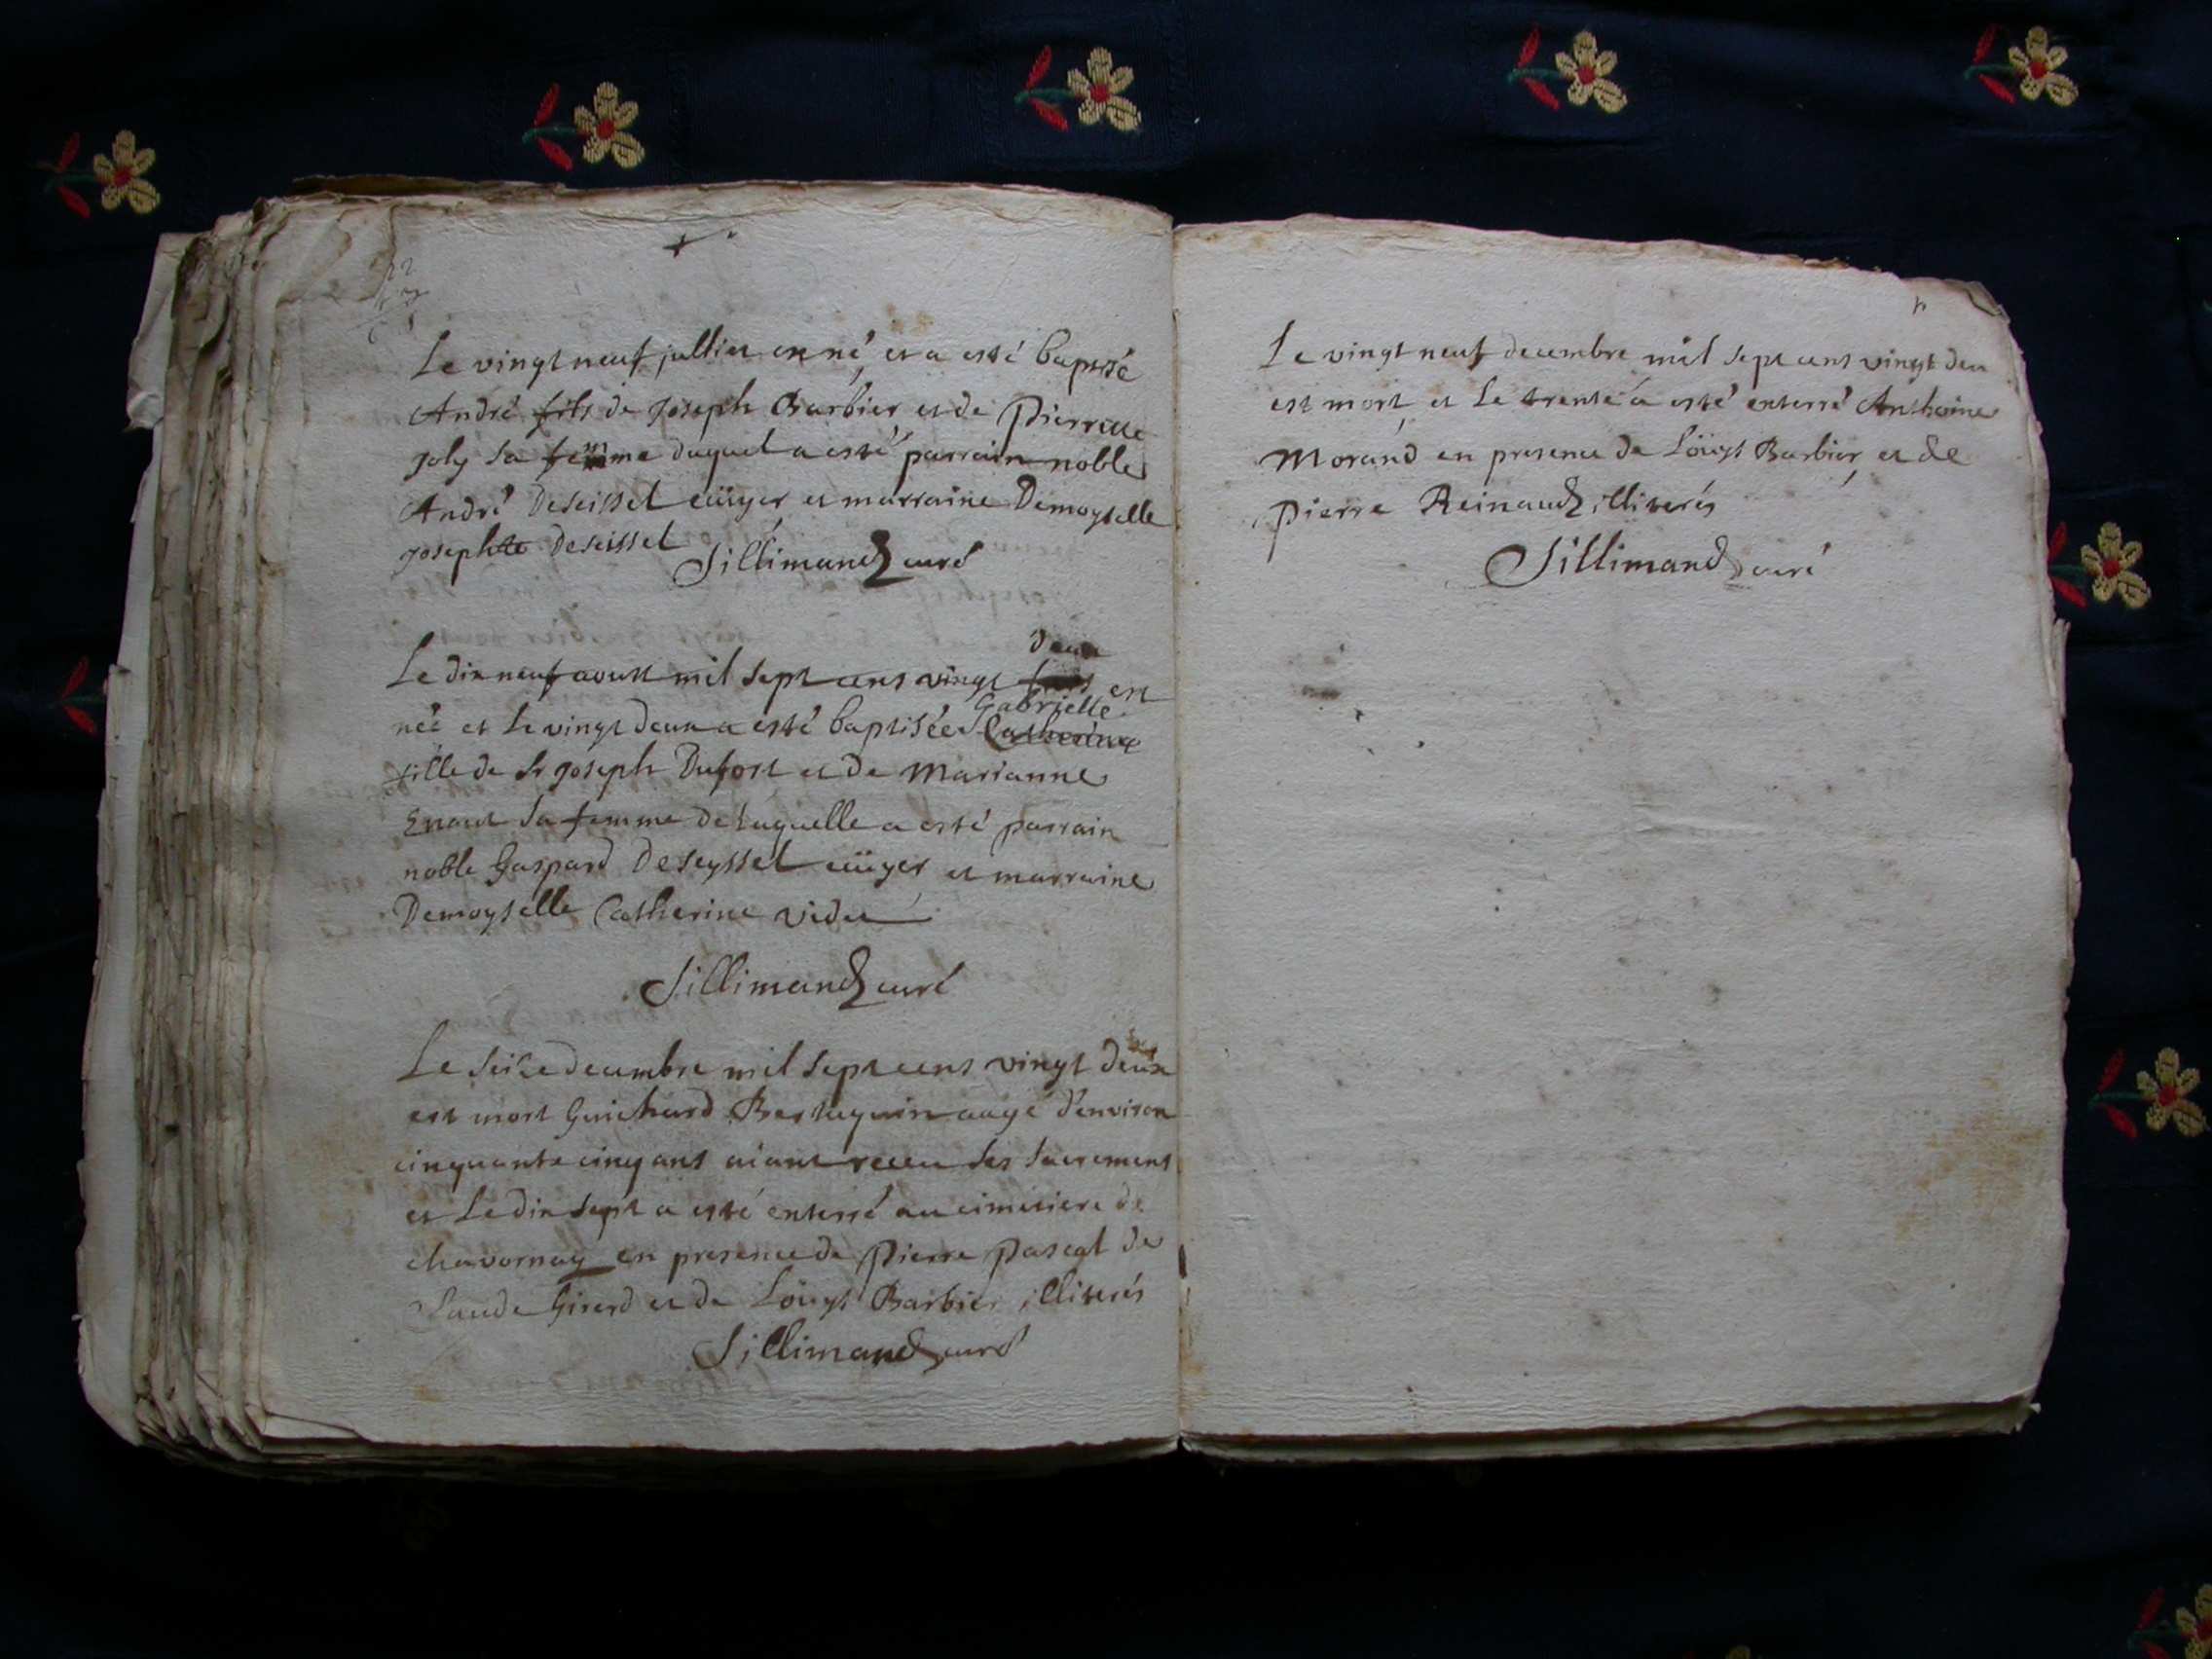 Le vingt neuf julliet est né, et a esté baptisé
André fils de Joseph Barbier et de Pierrette
Joly sa femme duquel a esté parrain noble
André Deseissel ecüyer et marraine Demoyselle
Josephte Deseissel
Sillimand curé
deux
Le dix neuf aoust mil sept cens vingt est
Gabrielle
née et le vingt deux a esté baptisée Catherine
fille de Sr Joseph Dufort et de Marianne
sa femme de laquelle a esté parrain
noble Gaspard Deseyssel ecüyer et marraine
Demoyselle Catherine
Sillimand curé
Le seise decembre mil sept cens vingt deux
est mort Guichard Berluquin aagé d'environ
cinquante cinq ans aiant receu ses sacremens
et le dix sept a esté enterré au cimetiere de
chavornay en presence de Pierre Pascal de
Claude Girerd et de Loüys Barbier illiterés
Sillimand curé
Le vingt neuf decembre mil sept cens vingt deu
est mort et le trente a esté enterré Anthoine
Morand en presence de Loüys Barbier et de
Pierre Reinaud illiterés
Sillimand curé